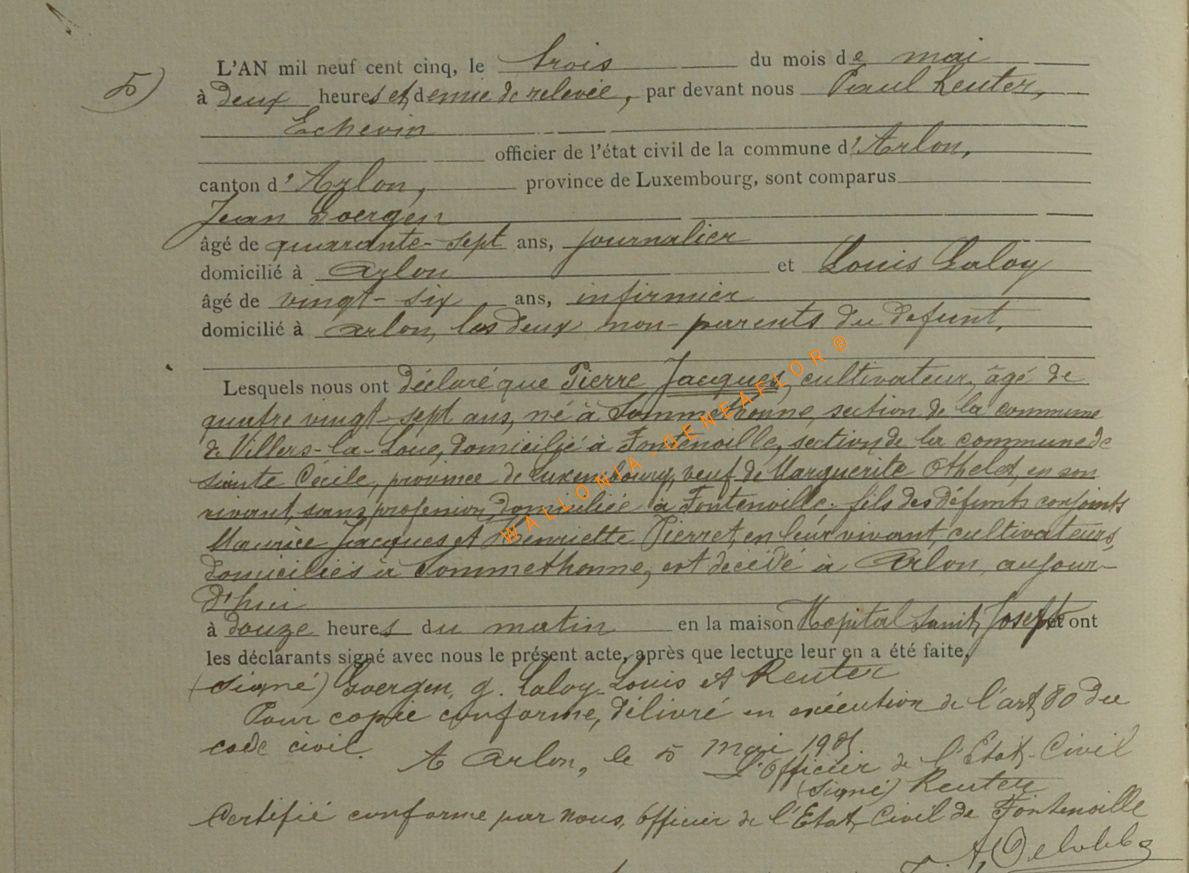 5)
L'AN mil neuf cent cinq, le trois du mois de mai
à deux heures et demie de relevée, par devant nous Paul Reuter,
Echevin
officier de l'état civil de la commune d'Arlon,
canton d'Arlon, province de Luxembourg, sont comparus
Jean Goergen
âgé de quarante-sept ans, journalier
domicilié à Arlon et Louis Laloy
âgé de vingt-six ans, infirmier
domicilié à Arlon, les deux non-parents du défunt,
Lesquels nous ont déclaré que Pierre Jacques, cultivateur, âgé de
quatre vingt-sept ans, né à Sommethonne, section de la commune
de Villers-la-Loue, domicilié à Fontenoille, section de la commune de
Sainte Cécile, province de Luxembourg, veuf de Marguerite Othelet, en son
vivant, sans profession, domiciliée à Fontenoille; fils des défunts conjoints
Maurice Jacques et Henriette Pierret, en leur vivant cultivateurs,
domiciliés à Sommethonne, est décédé à Arlon, aujour-
d'hui
à douze heures du matin en la maison Hopital Saint, Joseph et ont
les déclarants signé avec nous le présent acte, après que lecture leur en a été faite,
(signé) Goergen, J. Laloy Louis et Reuter
Pour copie conforme, délivré en exécution de l'art 80 du
code civil.
A Arlon, le 5 Mai 1905.
L'Officier de l'Etat-Civil
(signé) Reuter
Certifié conforme par nous, Officier de l'Etat Civil de Fontenoille
WALLONIA-GENEAFLOR®